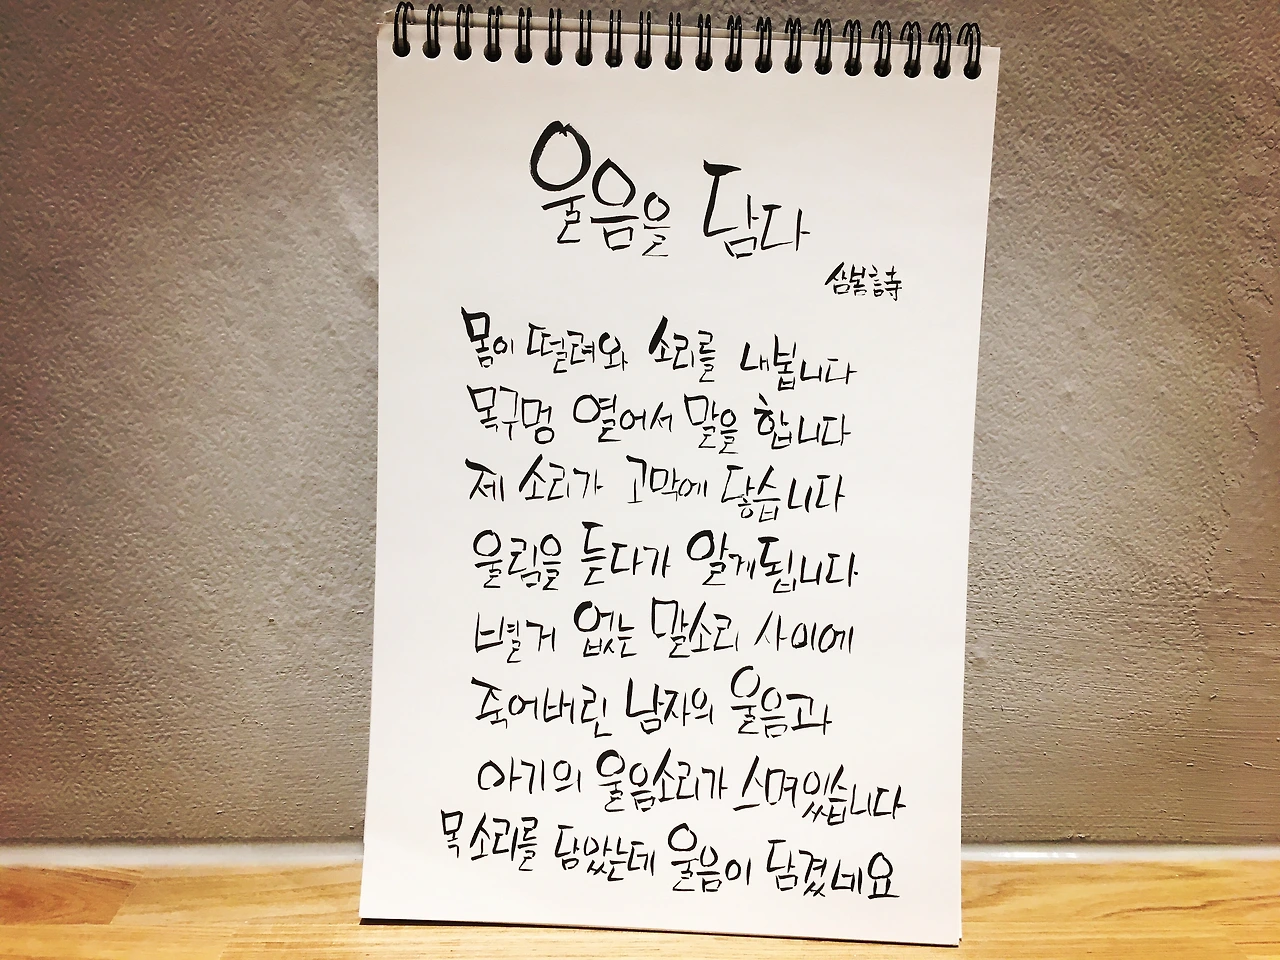 울음을 담다
삼봄詩
몸이 떨려와 소리를 내봅니다
목구멍 열어서 말을 합니다
제 소리가 고막에 닿습니다
울림을 듣다가 알게됩니다
별거 없는 말소리 사이에
죽어버린 남자의 울음과
아기의 울음소리가 스며있습니다
목소리를 담았는데 울음이 담겼네요